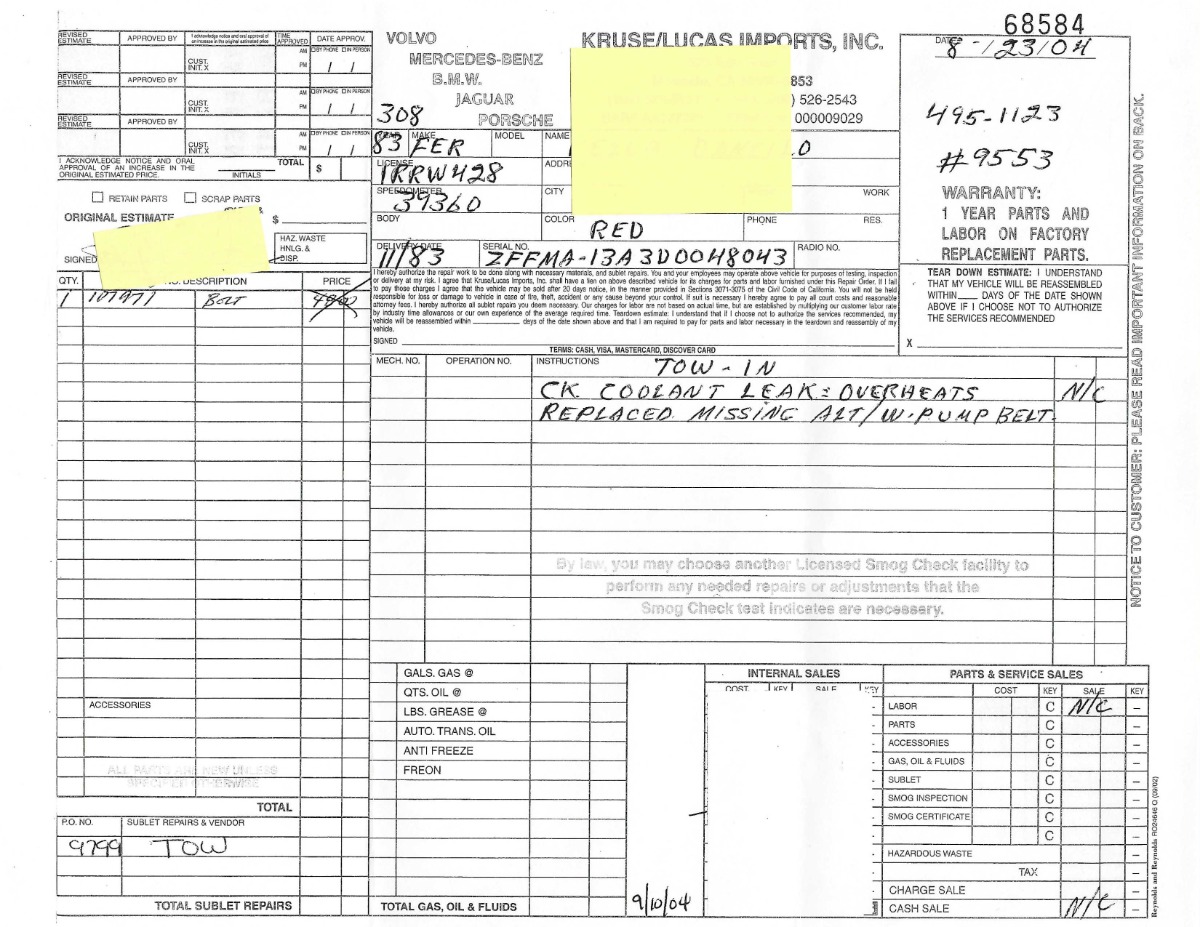 68584
KRUSE/LUCAS IMPORTS, INC.
DATE 8-/23/04
VOLVO
MERCEDES-BENZ
B.M.W.
JAGUAR
PORSCHE
853
) 526-2543
000009029
495-1123
#9553
WARRANTY:
1 YEAR PARTS AND
LABOR ON FACTORY
REPLACEMENT PARTS.
TEAR DOWN ESTIMATE: I UNDERSTAND
THAT MY VEHICLE WILL BE REASSEMBLED
WITHIN____ DAYS OF THE DATE SHOWN
ABOVE IF I CHOOSE NOT TO AUTHORIZE
THE SERVICES RECOMMENDED
X
NOTICE TO CUSTOMER: PLEASE READ IMPORTANT INFORMATION ON BACK.
REVISED ESTIMATE APPROVED BY I acknowledge notice and oral approval of an increase in the original estimated price TIME APPROVED DATE APPROV.
AM BY PHONE IN PERSON
CUST. INIT. X PM / /
REVISED ESTIMATE APPROVED BY
AM BY PHONE IN PERSON
CUST. INIT. X PM / /
REVISED ESTIMATE APPROVED BY
AM BY PHONE IN PERSON
CUST. INIT. X PM / /
I ACKNOWLEDGE NOTICE AND ORAL
APPROVAL OF AN INCREASE IN THE
ORIGINAL ESTIMATED PRICE.
INITIALS
TOTAL $
RETAIN PARTS SCRAP PARTS
ORIGINAL ESTIMATE $
SIGNED
HAZ. WASTE
HNLG. &
DISP.
308
YEAR 83 MAKE FER MODEL NAME O
LICENSE 1RRW428 ADDRE
SPEEDOMETER 39360 CITY WORK
BODY COLOR RED PHONE RES.
DELIVERY DATE 11/83 SERIAL NO. ZFFMA-13A3D0048043 RADIO NO.
I hereby authorize the repair work to be done along with necessary materials, and sublet repairs. You and your employees may operate above vehicle for purposes of testing, inspection
or delivery at my risk. I agree that Kruse/Lucas Imports, Inc. shall have a lien on above described vehicle for its charges for parts and labor furnished under this Repair Order. If I fail
to pay those charges I agree that the vehicle may be sold after 20 days notice, in the manner provided in Sections 3071-3075 of the Civil Code of California. You will not be held
responsible for loss or damage to vehicle in case of fire, theft, accident or any cause beyond your control. If suit is necessary I hereby agree to pay all court costs and reasonable
attorney fees. I hereby authorize all sublet repairs you deem necessary. Our charges for labor are not based on actual time, but are established by multiplying our customer labor rate
by industry time allowances or our own experience of the average required time. Teardown estimate: I understand that if I choose not to authorize the services recommended, my
vehicle will be reassembled within ____ days of the date shown above and that I am required to pay for parts and labor necessary in the teardown and reassembly of my
vehicle.
SIGNED
TERMS: CASH, VISA, MASTERCARD, DISCOVER CARD
QTY. DESCRIPTION PRICE
1 107971
MECH. NO. OPERATION NO. INSTRUCTIONS
TOW-IN
CK COOLANT LEAK: OVERHEATS N/C
REPLACED MISSING ALT/W.PUMP BELT.
By law, you may choose another Licensed Smog Check facility to
perform any needed repairs or adjustments that the
Smog Check test indicates are necessary.
ACCESSORIES
ALL PARTS ARE NEW UNLESS
SPECIFIED OTHERWISE
TOTAL
P.O. NO. SUBLET REPAIRS & VENDOR
9799 TOW
TOTAL SUBLET REPAIRS
GALS. GAS @
QTS. OIL @
LBS. GREASE @
AUTO. TRANS. OIL
ANTI FREEZE
FREON
TOTAL GAS, OIL & FLUIDS
9/10/04
INTERNAL SALES
COST KEY SALE KEY
PARTS & SERVICE SALES
COST KEY SALE KEY
LABOR C N/C –
PARTS C –
ACCESSORIES C –
GAS, OIL & FLUIDS C –
SUBLET C –
SMOG INSPECTION C –
SMOG CERTIFICATE C –
C –
HAZARDOUS WASTE –
TAX –
CHARGE SALE –
CASH SALE N/C –
Reynolds and Reynolds RO24646 O (09/02)